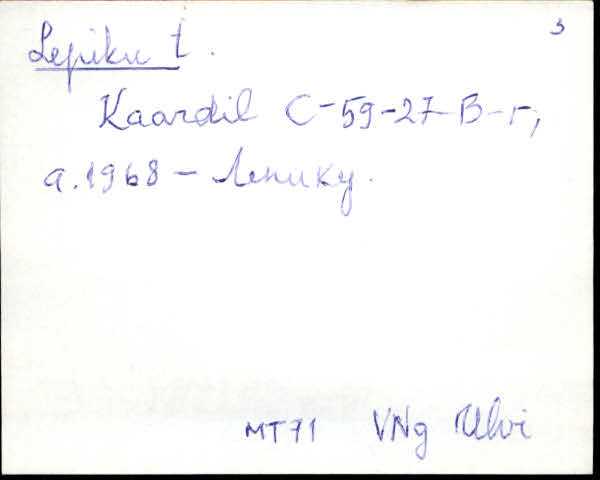 3
Lepiku t.
Kaardil C-59-27-В-г,
a. 1968 – Лепику.
MT71 VNg Ulvi